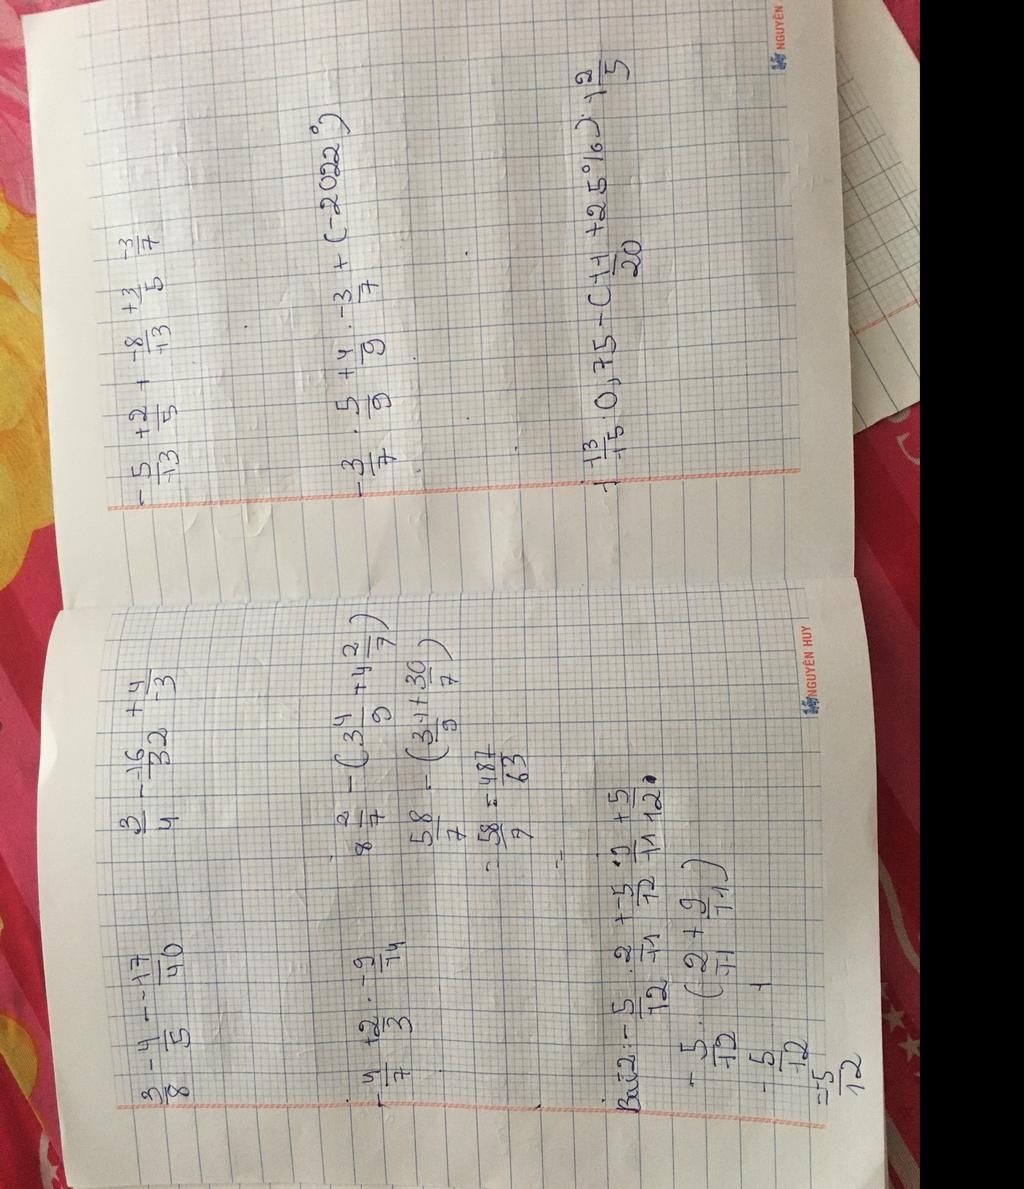 3/8 - 4/5 - -17/40
3/4 - -16/32 + 4/-3
-4/7 + 2/3 . -9/14
8 2/7 - (3 4/9 + 4 2/7)
58/7 - (31/9 + 30/7)
= 58/7 = 487/63
=
Bài 2: -5/12 . 2/11 + -5/12 . 9/11 + 5/12
-5/12 . (2/11 + 9/11)
-5/12 . 1
= -5/12
NGUYÊN HUY
-5/13 + 2/5 + -8/13 + 3/5 -3/7
-3/7 . 5/9 + 4/9 . -3/7 + (-2022⁰)
1 13/15 . 0,75 - (11/20 + 25%) : 1 2/5
NGUYÊN